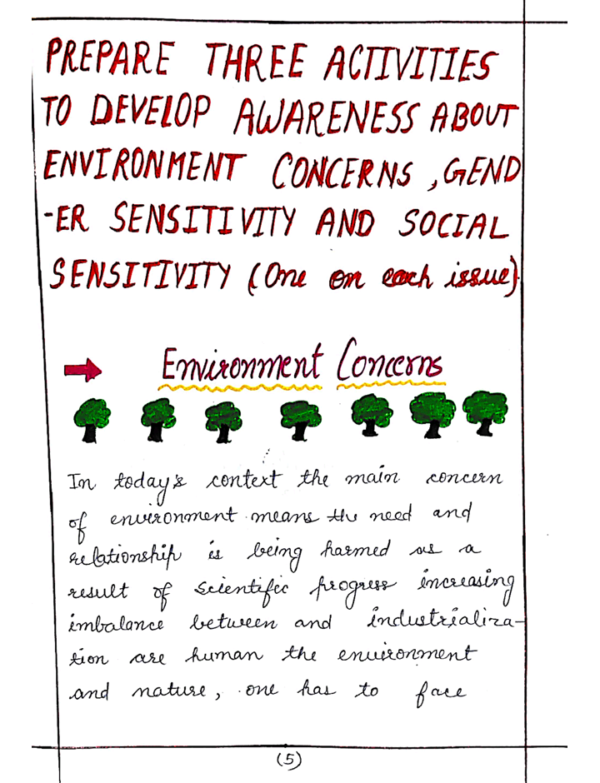 PREPARE THREE ACTIVITIES
TO DEVELOP AWARENESS ABOUT
ENVIRONMENT CONCERNS, GEND
-ER SENSITIVITY AND SOCIAL
SENSITIVITY (One on each issue)
Environment Concerns
In today's context the main concern
of environment means the need and
relationship is being harmed as a
result of scientific progress increasing
imbalance between and industrializa-
tion are human the environment
and nature, one has to face
(5)